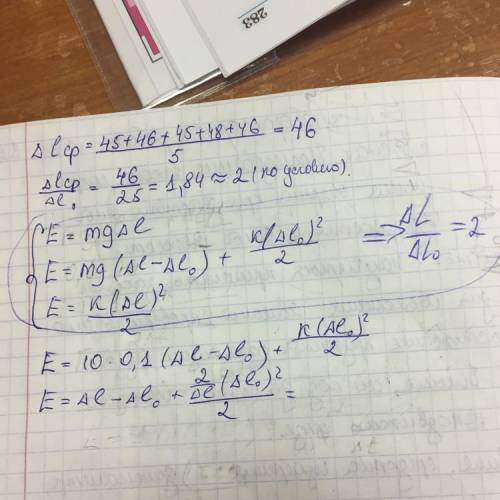 283
Δlср = (45+46+45+48+46)/5 = 46
Δlср/Δl₀ = 46/25 = 1,84 ≈ 2 (по условию).
E = mgΔl
E = mg(Δl-Δl₀) + K(Δl₀)²/2 => Δl/Δl₀ = 2
E = K(Δl)²/2
E = 10·0,1(Δl-Δl₀) + K(Δl₀)²/2
E = Δl-Δl₀ + 2/Δl (Δl₀)²/2 =